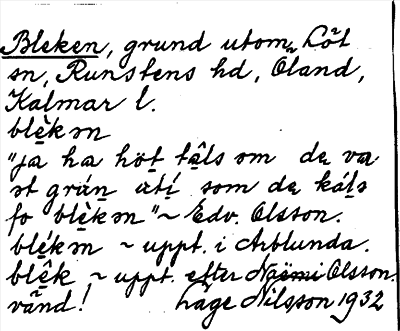 Bleken, grund utom Löt
sn, Runstens hd, Öland,
Kalmar l.
blèkm
"ja ha höt tâls om de va
st grán ùtí som de káls
fo blèkm" ~ Edv. Olsson.
blékm ~ uppt. i Arblunda.
blêk ~ uppt. efter Naëmi Olsson.
vänd! Lage Nilsson 1932